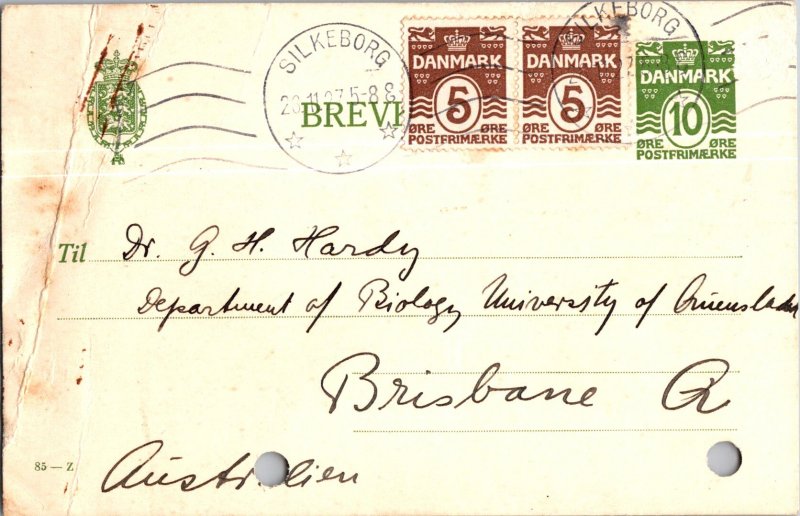 SILKEBORG
5-8
BREVK
DANMARK
5
ØRE ØRE
POSTFRIMÆRKE
DANMARK
5
ØRE ØRE
POSTFRIMÆRKE
SILKEBORG
DANMARK
10
ØRE ØRE
POSTFRIMÆRKE
Til Dr. G. H. Hardy
Department of Biology University of Queensland
Brisbane Q
85 — Z
Australien